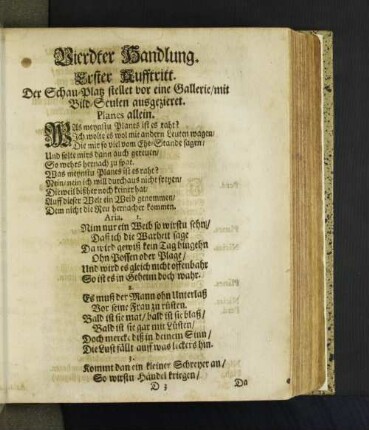 Vierdter Handlung.
Erster Aufftritt.
Der Schau-Platz stellet vor eine Gallerie/mit
Bild-Seulen ausgezieret.
Planes allein.
WAs meynstu Planes ist es raht?
Ich wolte es wol mit andern Leuten wagen/
Die mit so viel vom Ehe-Stande sagen/
Und solte mirs dann auch gereuen/
So wehrs hernach zu spat.
Was meynstu Planes ist es raht?
Nein/nein ich will durchaus nicht freyen/
Dieweil bißher noch keiner hat/
Auff dieser Welt ein Weib genommen/
Dem nicht die Reu hernacher kommen.
Aria. 1.
Nim nur ein Weib so wirstu sehn/
Daß ich die Warheit sage
Da wird gewiß kein Tag hingehn
Ohn Possen oder Plage/
Und wird es gleich nicht offenbahr
So ist es in Geheim doch wahr.
2.
Es muß der Mann ohn Unterlaß
Vor seine Frau zu rüsten.
Bald ist sie mat/ bald ist sie blaß/
Bald ist sie gar mit Lüsten/
Doch merck: diß in deinem Sinn/
Die Lust fällt auff was leckers hin.
3.
Kommt dan ein kleiner Schreyer an/
So wirstu Händel kriegen/
D 3 Da